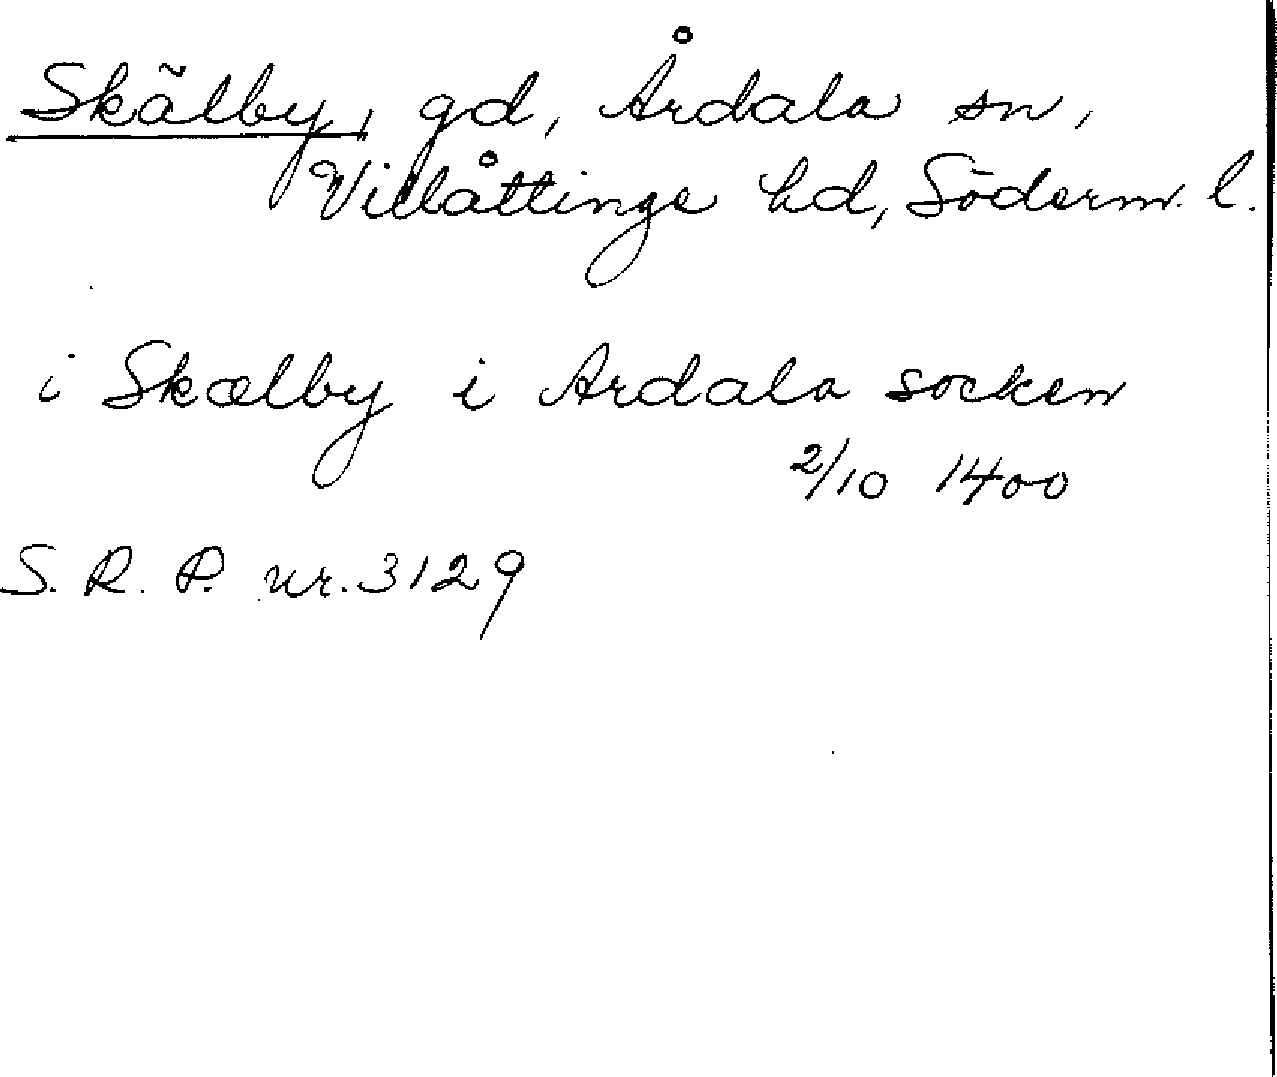 Skälby, gd, Årdala sn,
Villåttinge hd, Söderm. l.
i Skælby i Ardala socken
2/10 1400
S. R. P. nr. 3129